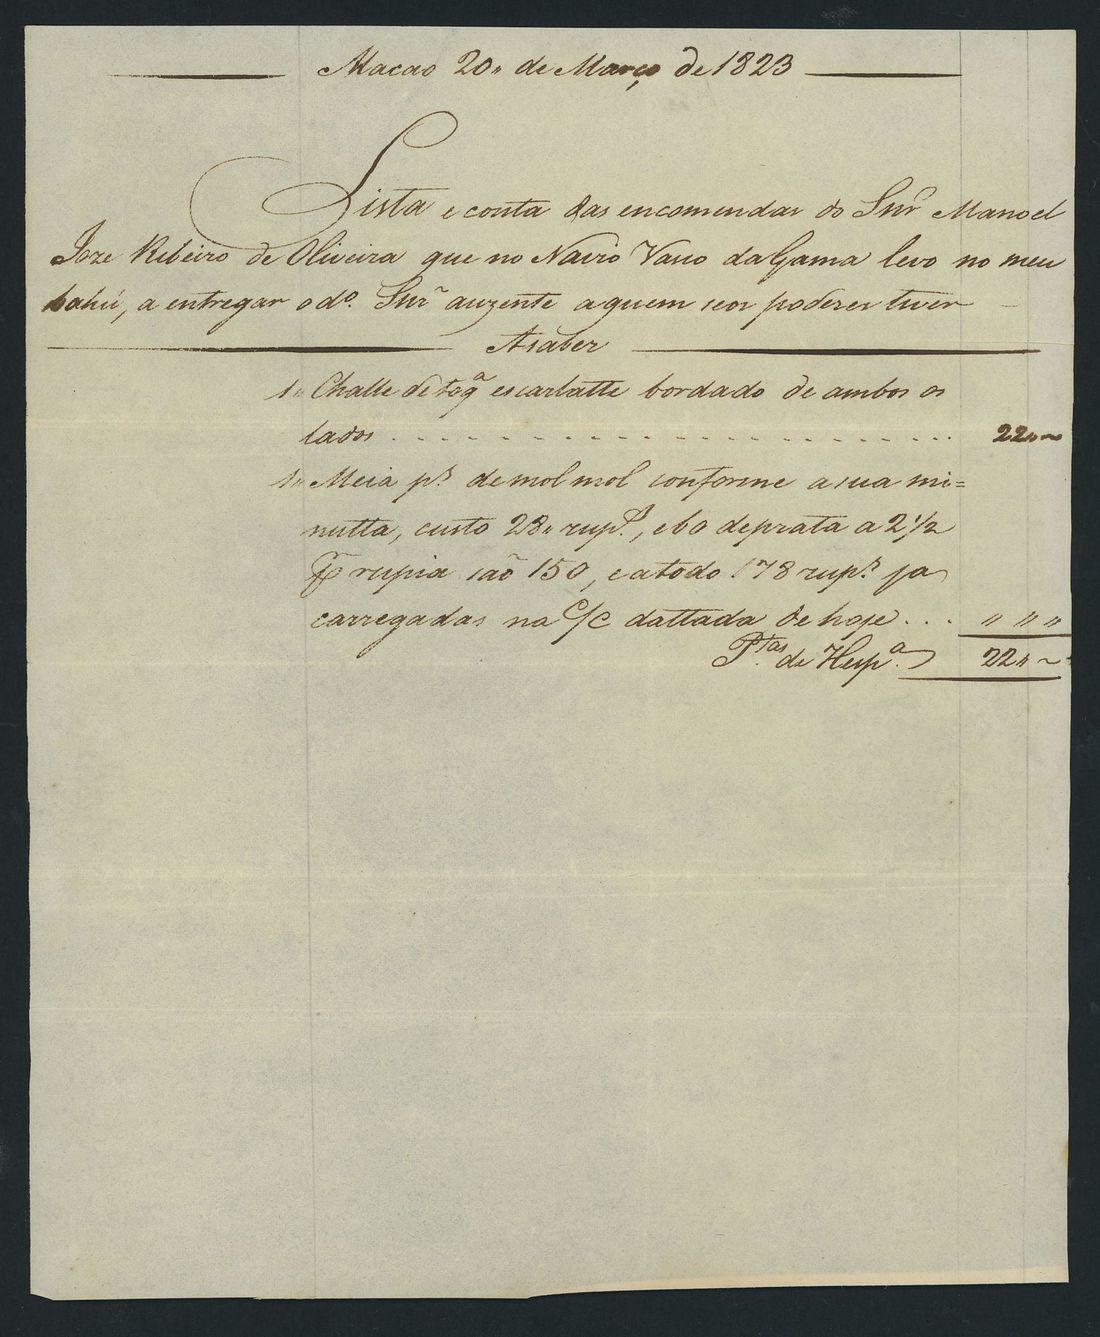 Macao 20,, de Março de 1823
Lista e conta das encomendas do Snr̃ Manoel
Joze Ribeiro de Oliveira que no Navio Vasco da Gama levo no meu
bahú, a entregar o dº. Snr̃ auzente a quem seos poderes tiver
A saber
1,, Challe de toqª escarlatte bordado de ambos os
lados . . . . . . . . . . . . . . . . . . . . . . 22,,~
1,, Meia pˢ de mol mol conforme a sua mi=
nutta, custo 28,, rupˢ., e 60 de prata a 2 1/2
℘ rupia saõ 150, e a todo 178 rupˢ ja
carregadas na c/c dattada de hoje . . . ,, ,, ,,
Pᵗᵃˢ. de Hespª. 22,,~